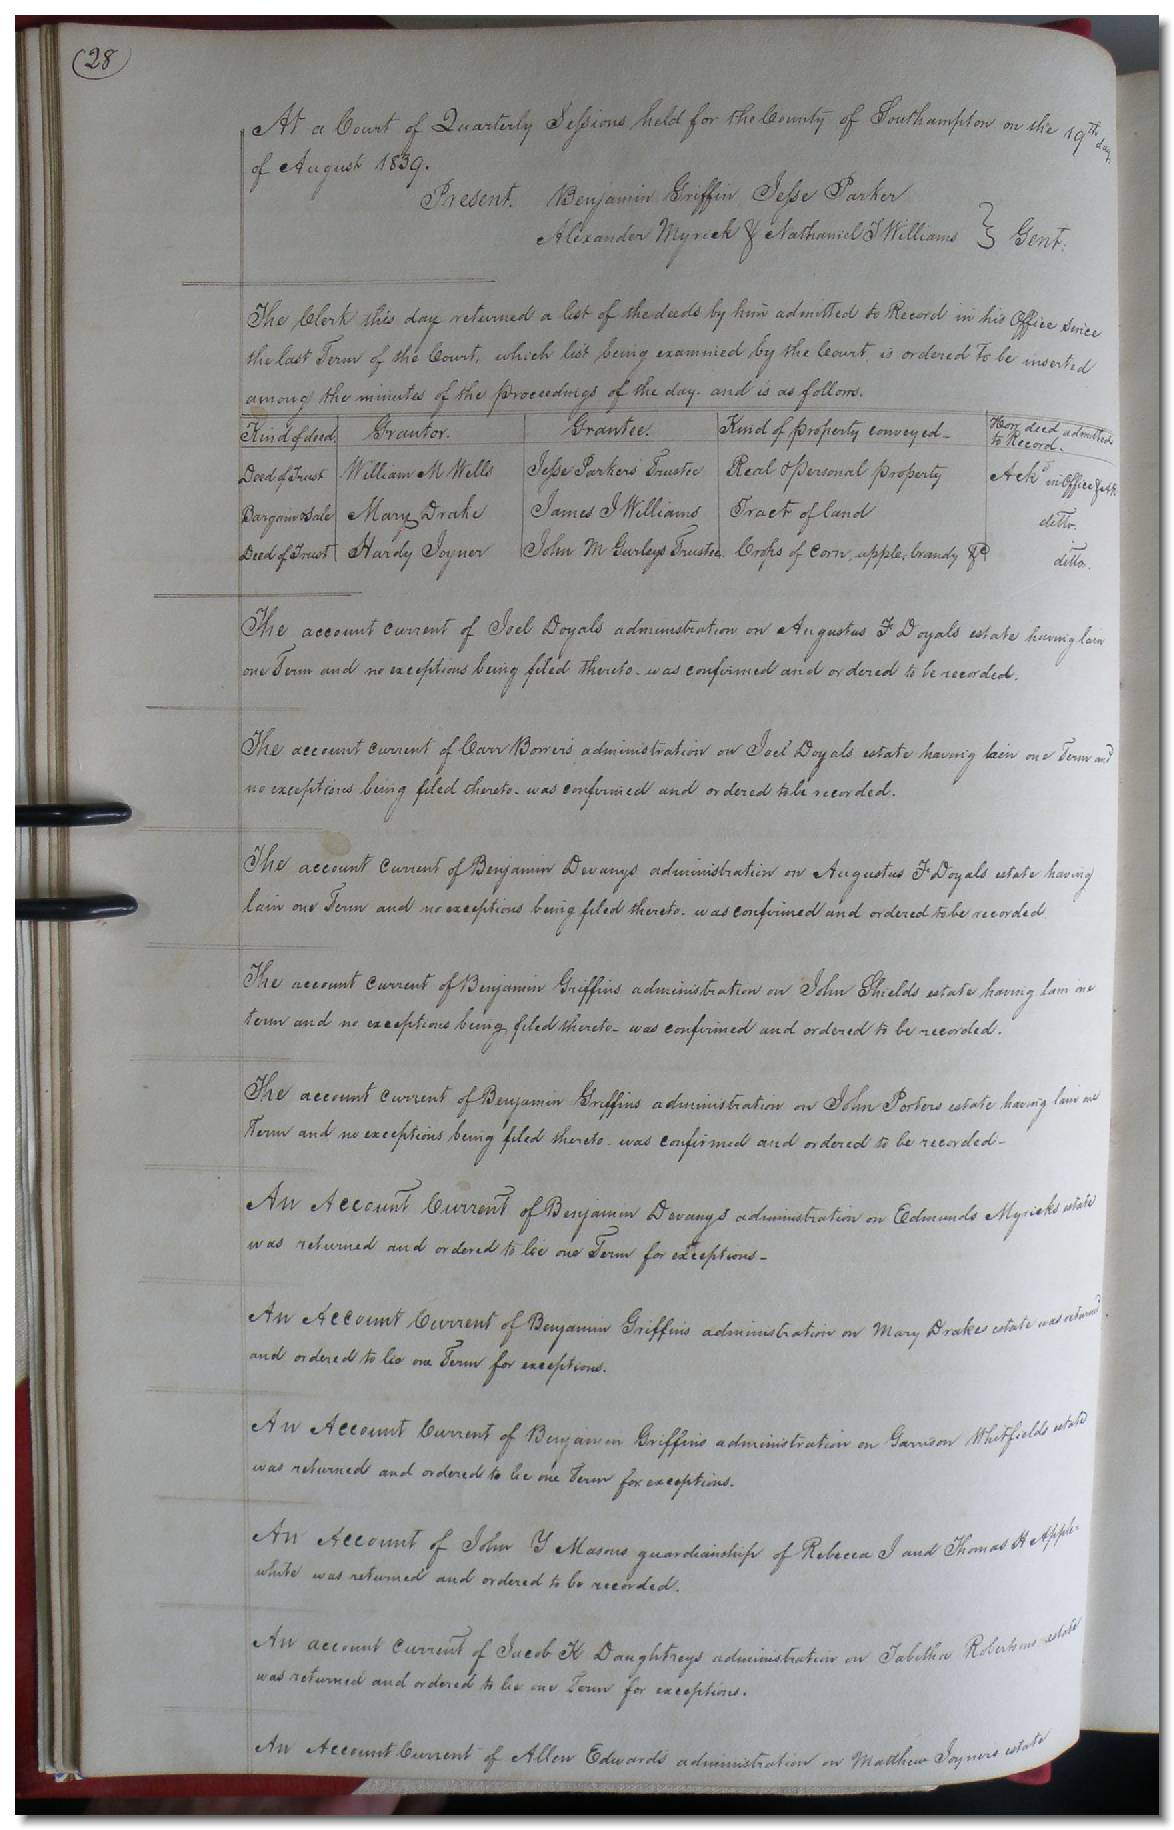 28
At a Court of Quarterly Sessions held for the County of Southampton on the 19th day
of August 1839.
Present. Benjamin Griffin, Jesse Parker
Alexander Myrick & Nathaniel T Williams } Gent.
The Clerk this day returned a list of the deeds by him admitted to Record in his Office since
the last Term of the Court, which list being examined by the Court, is ordered to be inserted
among the minutes of the proceedings of the day. and is as follows.
Kind of deed. Grantor. Grantee. Kind of property conveyed- How deed admitted
to Record.
Deed of Trust William M Wells Jesse Parkers Trustee Real & personal property Ackd in Office &
Bargain & Sale Mary Drake James J Williams Tract of land ditto.
Deed of Trust Hardy Joyner John M Gurleys Trustee Crops of corn, apple, brandy &c ditto.
The account current of Joel Doyals administration on Augustus F Doyals estate having lain
one Term and no exceptions being filed thereto- was confirmed and ordered to be recorded.
The account current of Carr Bowers administration on Joel Doyals estate having lain one Term and
no exceptions being filed thereto- was confirmed and ordered to be recorded.
The account current of Benjamin Devanys administration on Augustus F Doyals estate having
lain one Term and no exceptions being filed thereto. was confirmed and ordered to be recorded.
The account current of Benjamin Griffins administration on John Shields estate having lain one
term and no exceptions being filed thereto- was confirmed and ordered to be recorded.
The account current of Benjamin Griffins administration on John Porters estate having lain one
Term and no exceptions being filed thereto. was confirmed and ordered to be recorded-
An Account Current of Benjamin Devanys administration on Edmunds Myricks estate
was returned and ordered to lie one Term for exceptions-
An Account Current of Benjamin Griffins administration on Mary Drakes estate was returned
and ordered to lie one Term for exceptions.
An Account Current of Benjamin Griffins administration on Garrison Whitfields estate
was returned and ordered to lie one Term for exceptions.
An Account of John Y Masons guardianship of Rebecca J and Thomas H Apple-
white was returned and ordered to be recorded.
An account current of Jacob K Daughtreys administration on Tabitha Robertsons estate
was returned and ordered to lie one Term for exceptions.
An Account Current of Allen Edwards administration on Matthew Joyners estate